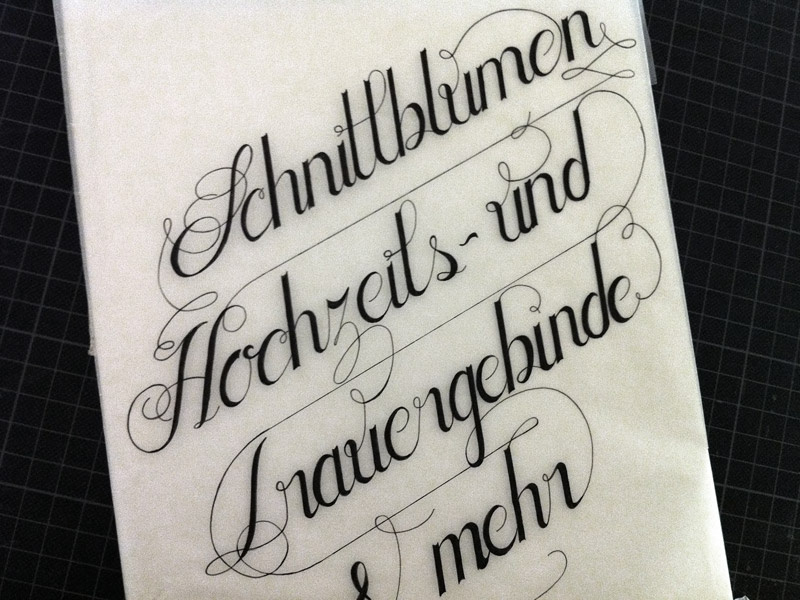 Schnittblumen
Hochzeits- und
Trauergebinde
& mehr